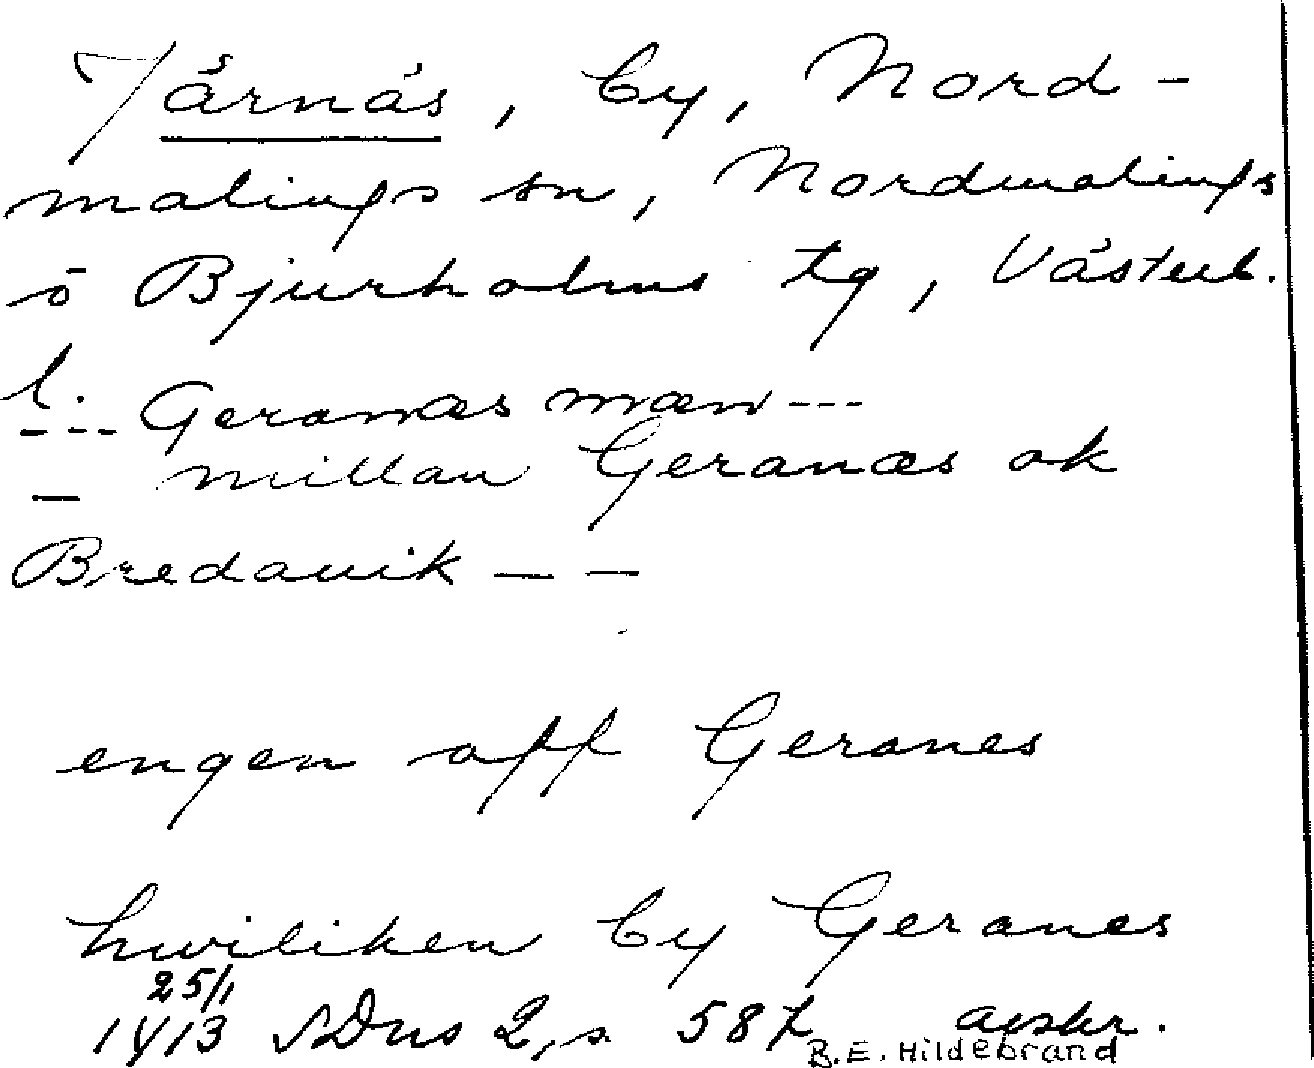 Järnäs, by, Nord-
malings sn, Nordmalings
o Bjurholms tg, Västerb.
l.
--- Geranæs mæn ---
— millan Geranæs ok
Bredauik — —
engen aff Geranes
hwiliken by Geranes
25/1
1413 SDns 2, s. 587 avskr.
B.E. Hildebrand